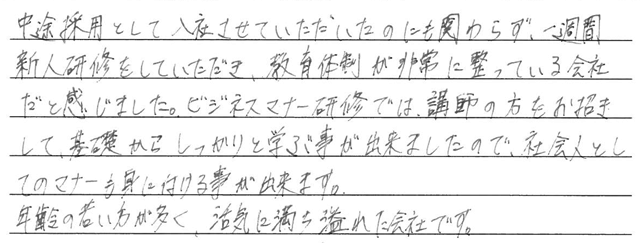 中途採用として入社させていただいたのにも関わらず、一週間
新人研修をしていただき、教育体制が非常に整っている会社
だと感じました。ビジネスマナー研修では、講師の方をお招き
して、基礎からしっかりと学ぶ事が出来ましたので、社会人とし
てのマナーも身に付ける事が出来ます。
年齢の若い方が多く、活気に満ち溢れた会社です。